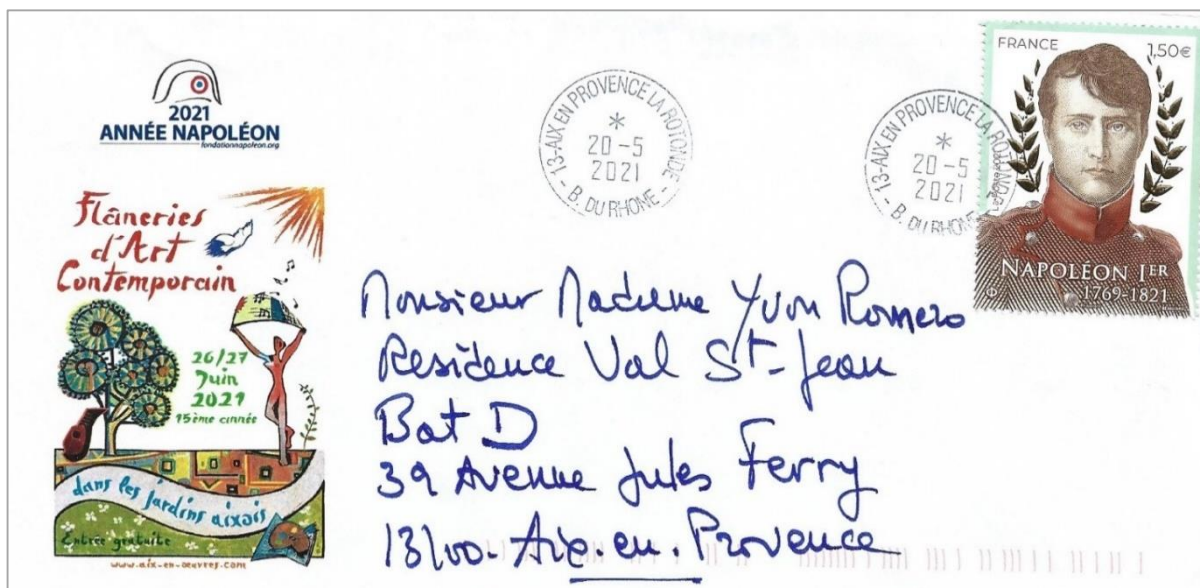 2021
ANNÉE NAPOLÉON
fondationnapoleon.org
Flâneries
d'Art
Contemporain
26/27
Juin
2021
15ème année
dans les jardins aixois
Entrée gratuite
www.aix-en-oeuvres.com
13-AIX EN PROVENCE LA ROTONDE
*
20-5
2021
- B. DU RHONE -
13-AIX EN PROVENCE LA ROTONDE
*
20-5
2021
- B. DU RHONE -
FRANCE 1,50€
NAPOLÉON IER
1769-1821
Monsieur Madame Yvon Romero
Residence Val St-Jean
Bat D
39 Avenue Jules Ferry
13100-Aix.en.Provence